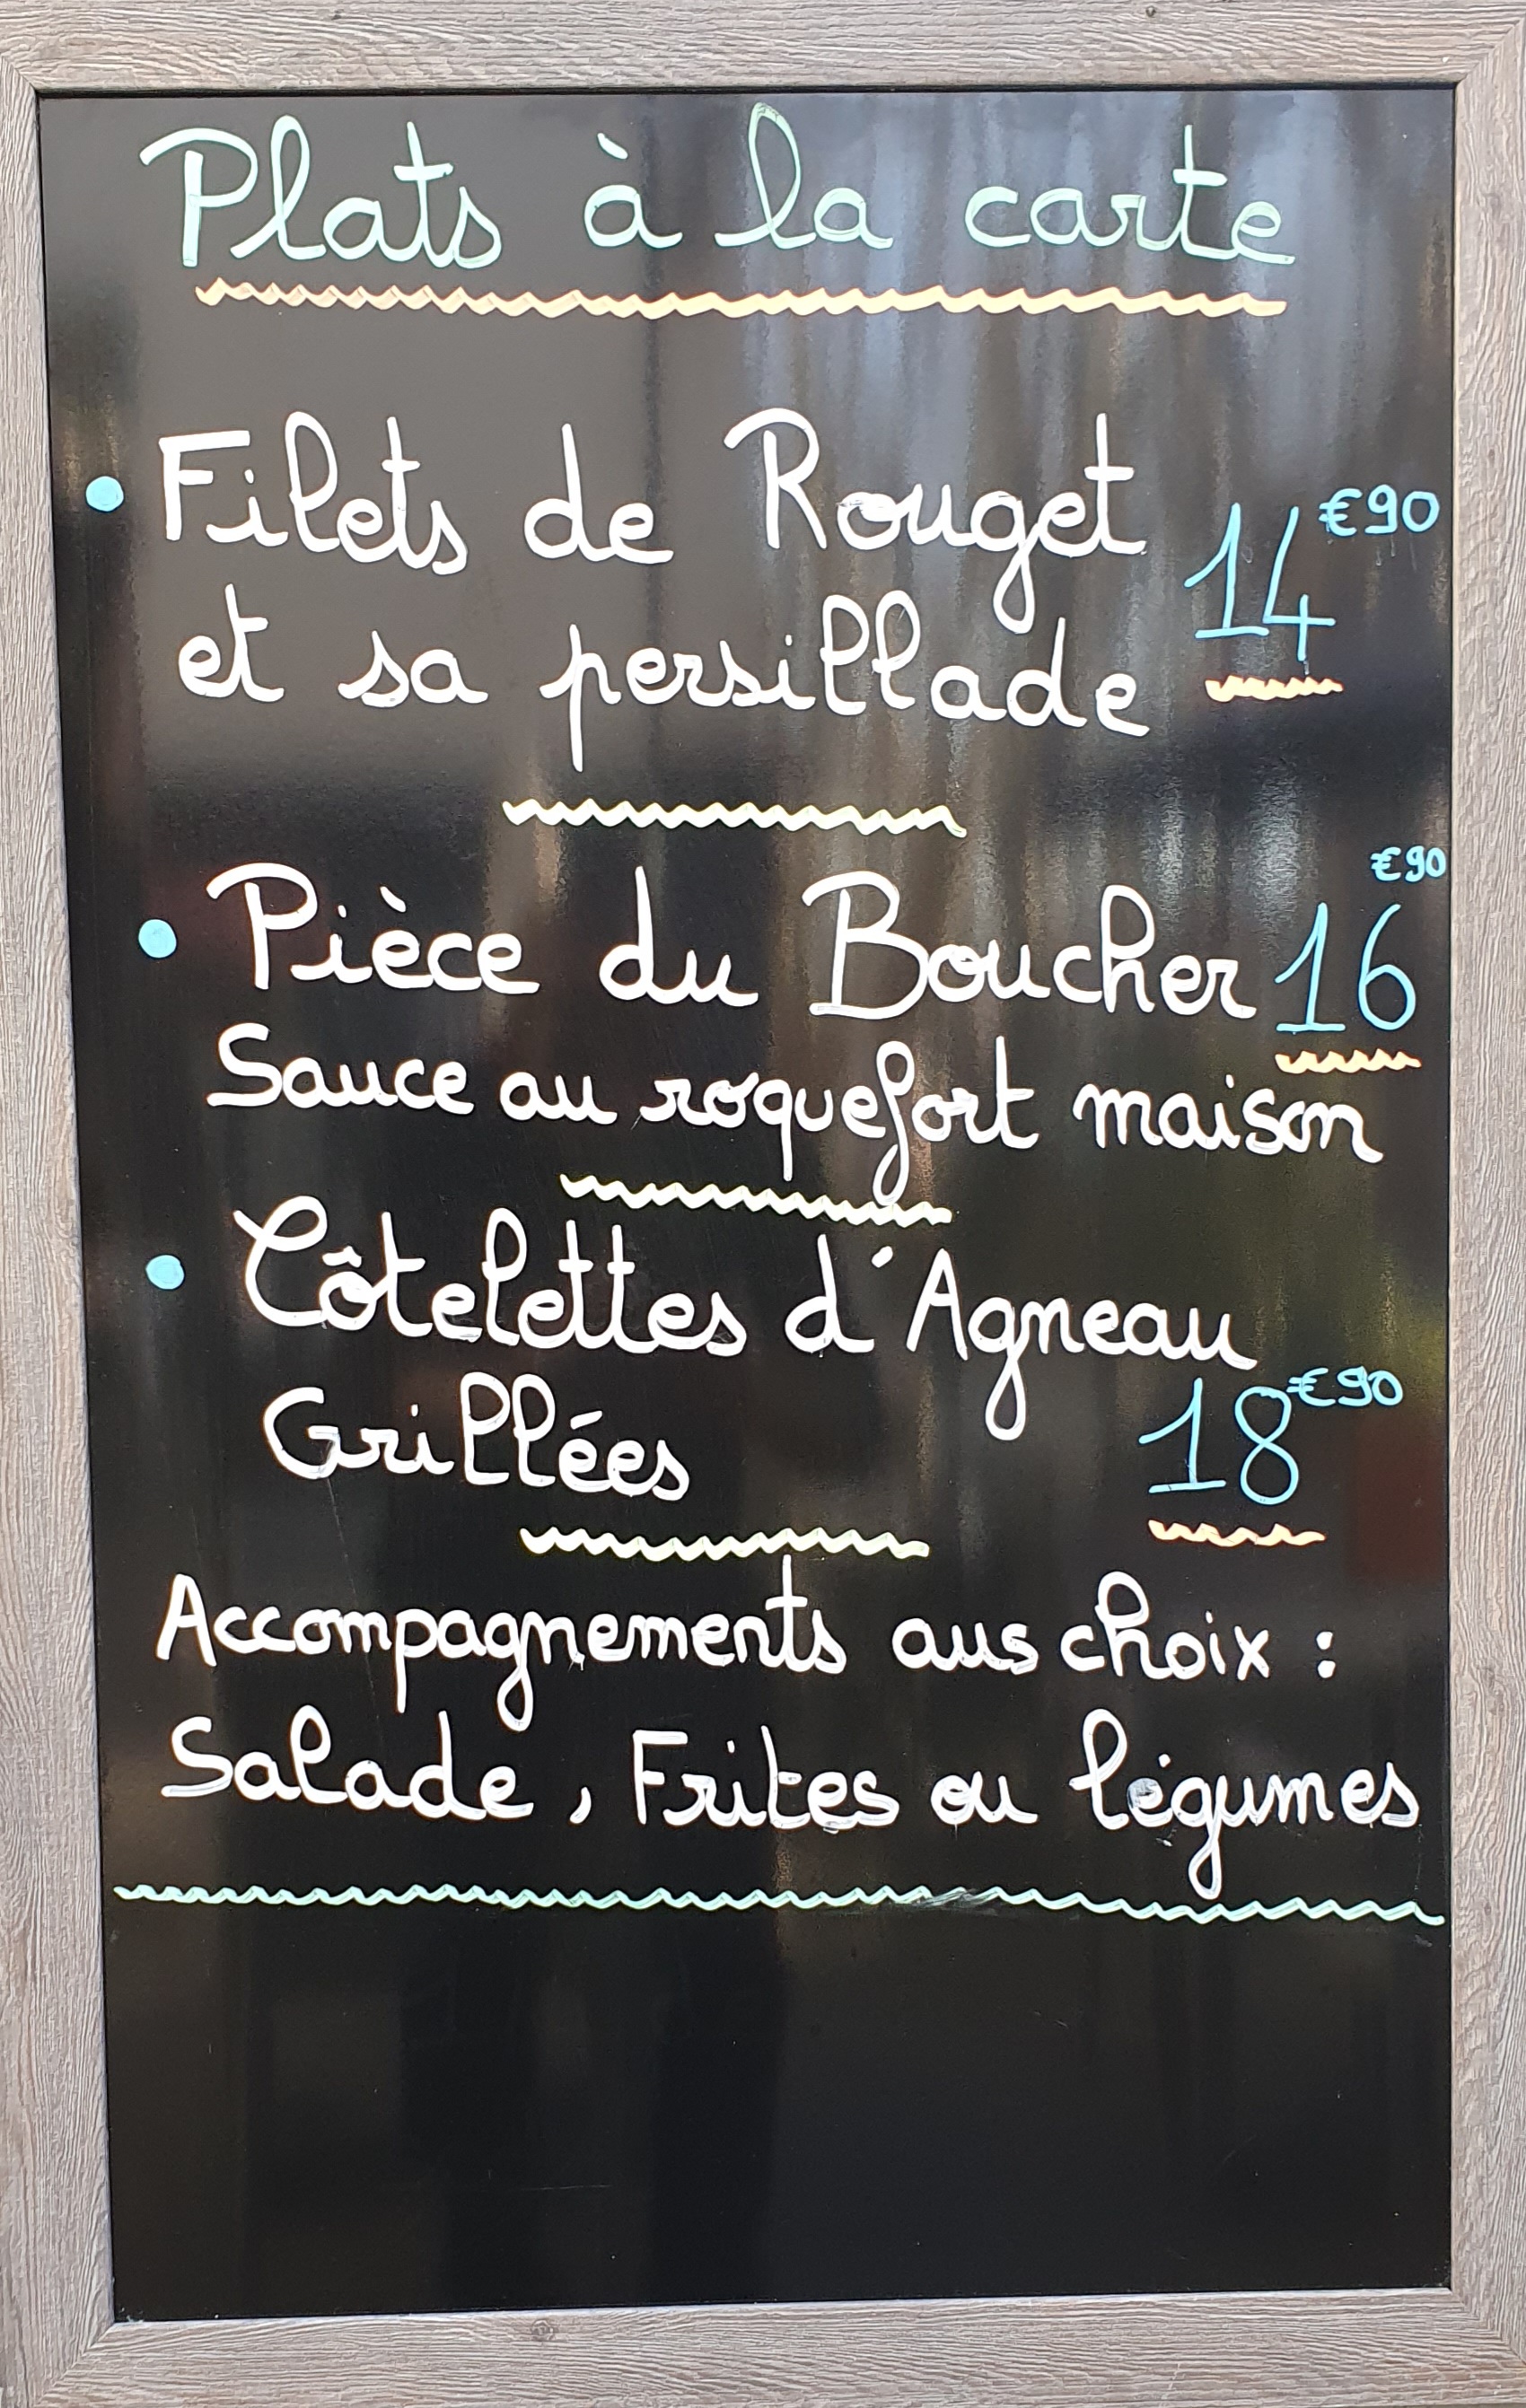 Plats à la carte
• Filets de Rouget 14€90
et sa persillade
• Pièce du Boucher 16€90
Sauce au roquefort maison
• Côtelettes d'Agneau
Grillées 18€90
Accompagnements aus choix :
Salade, Frites ou légumes